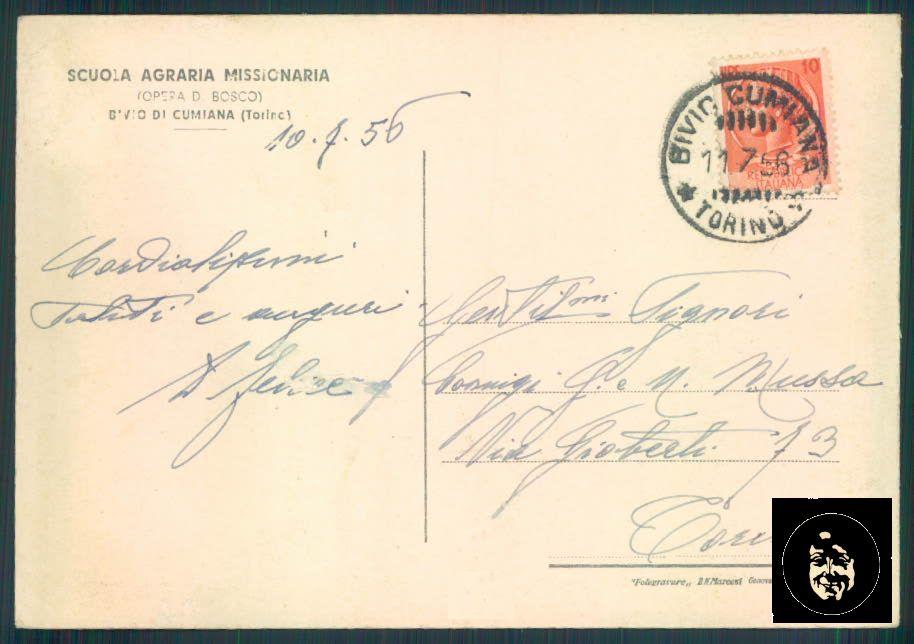 SCUOLA AGRARIA MISSIONARIA
(OPERA D. BOSCO)
BIVIO DI CUMIANA (Torino)
10.7.56
Cordialissimi
saluti e auguri
D Felice
10
REPUBBLICA
ITALIANA
BIVIO CUMIANA
11.7.56
TORINO
Gentilmi Signori
Coniugi G. e M. Mussa
Via Gioberti 73
"Fotogravure„ B.N. Marconi Genova